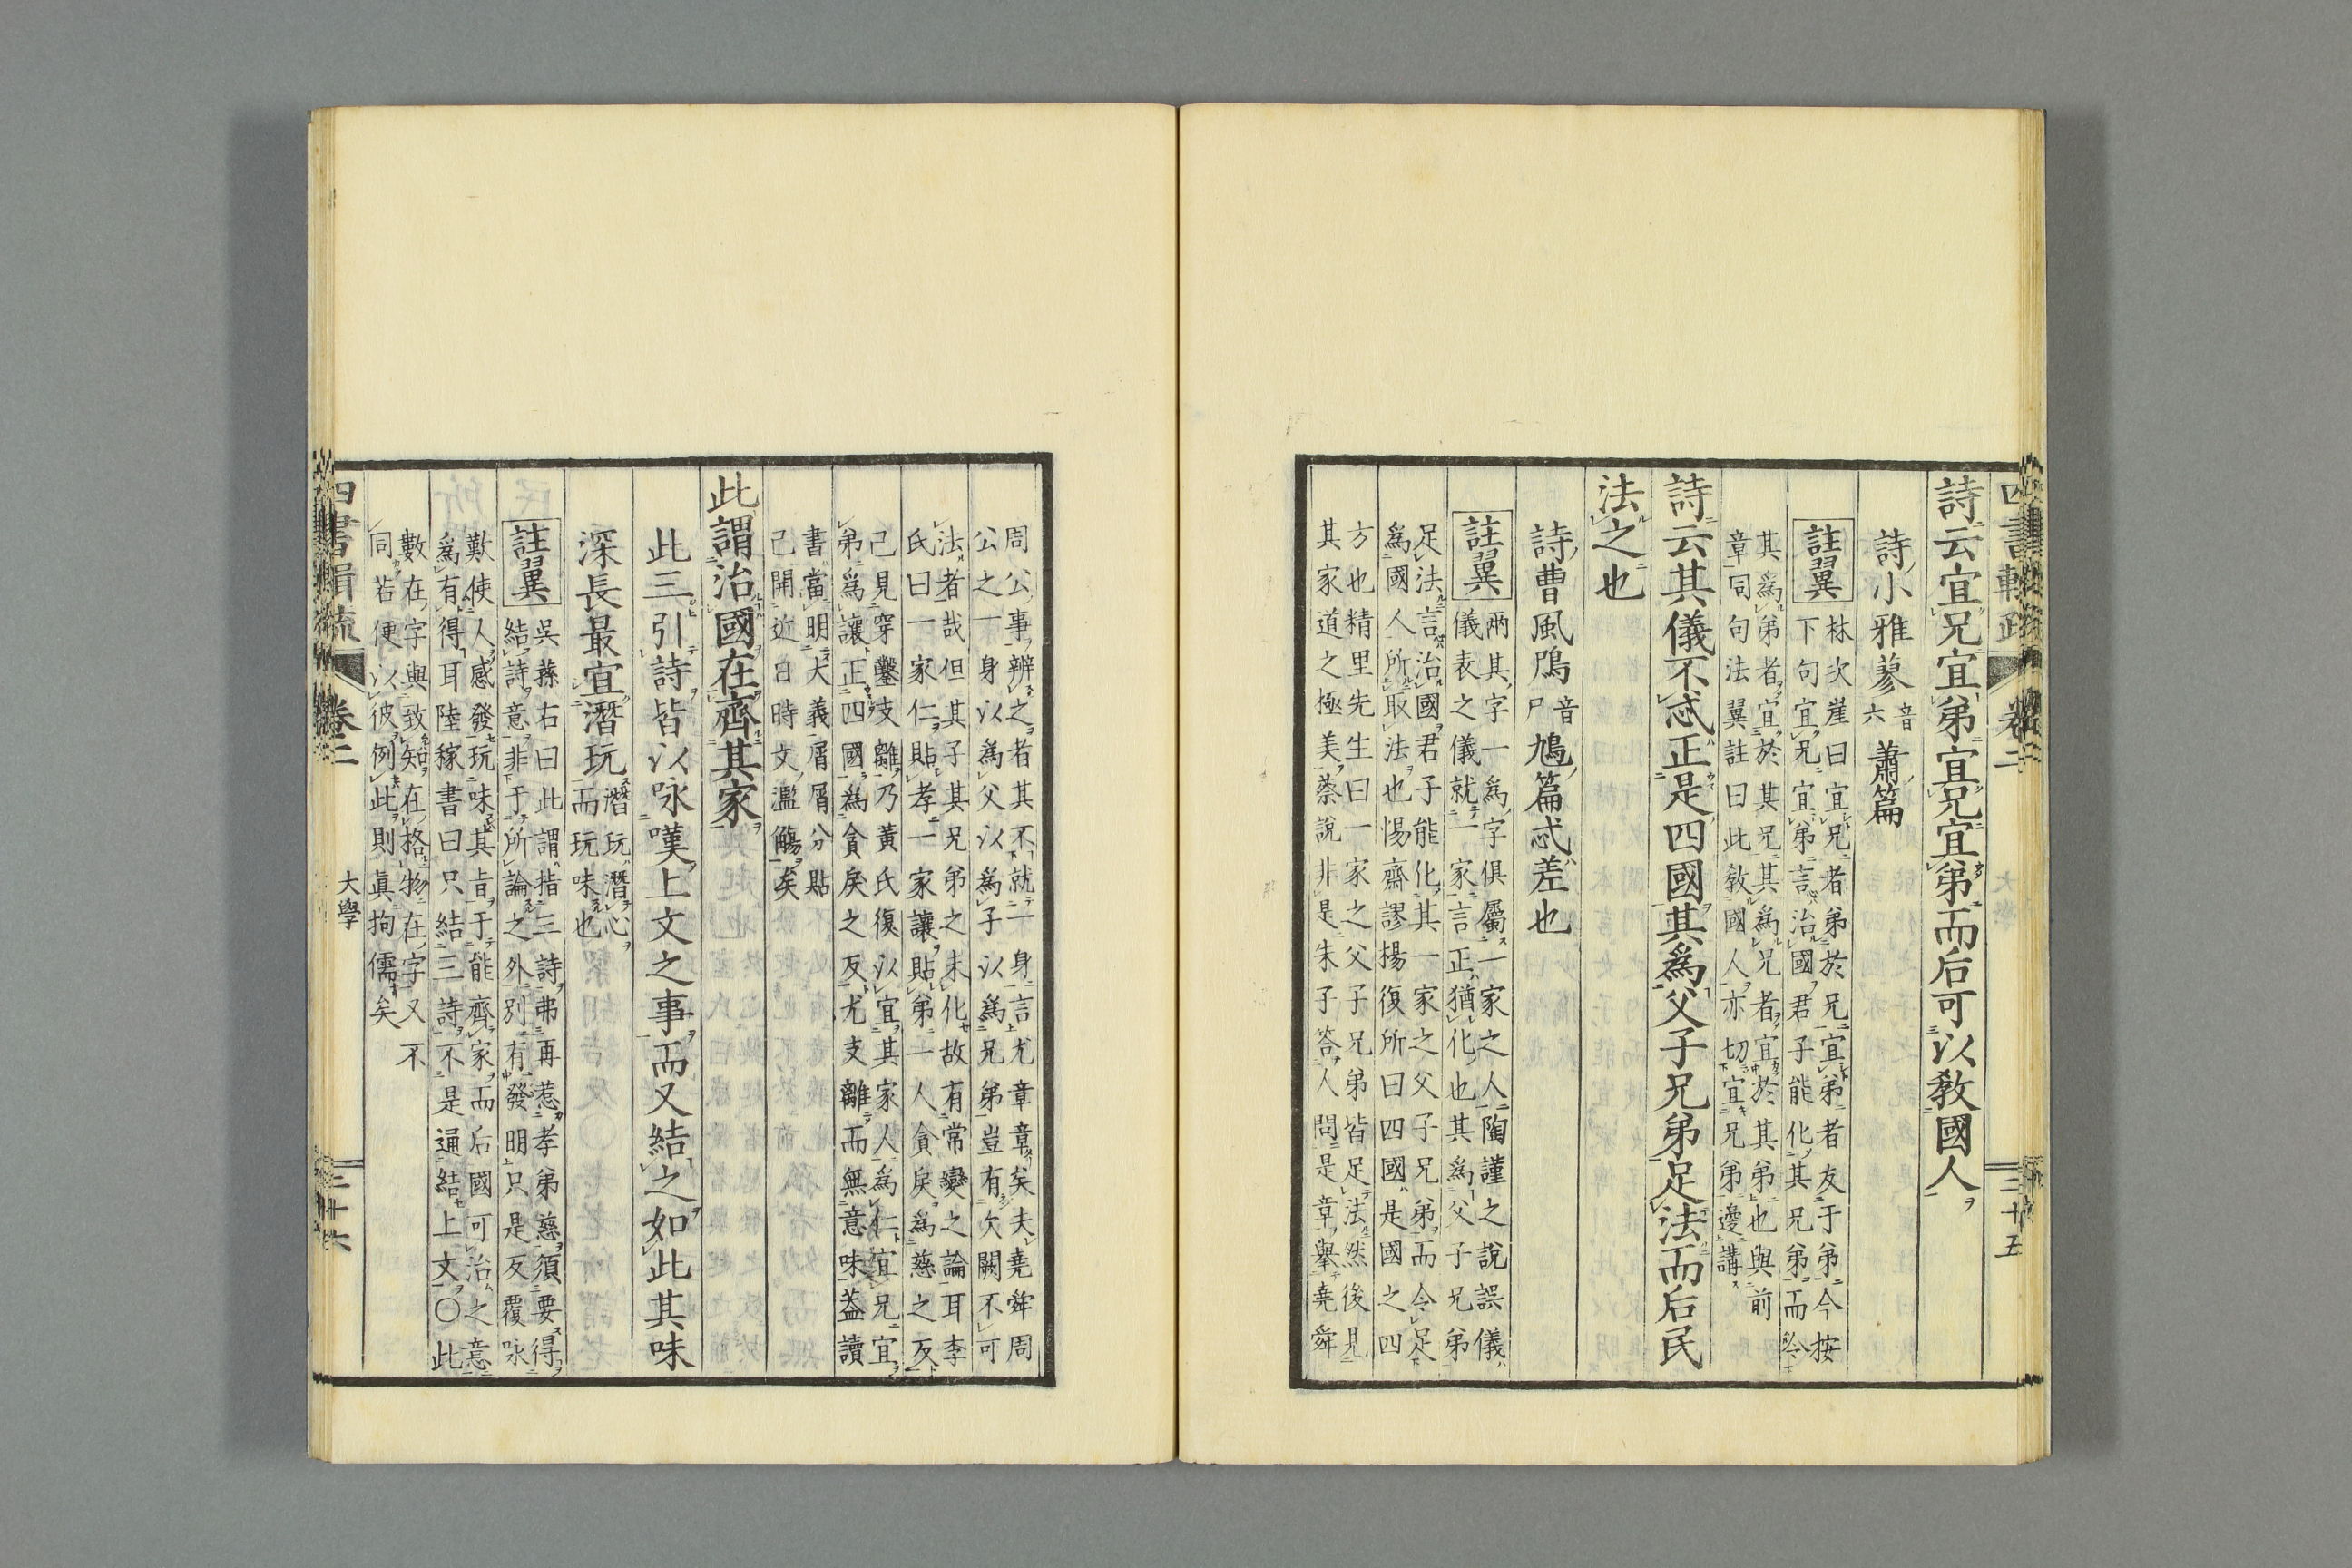 詩云宜兄宜弟宜兄宜弟而后可以教國人
詩小雅蓼音六蕭篇
註翼
林次崖曰宜兄者弟於兄宜弟者友于弟今按
下句宜兄宜弟言治國君子能化其兄弟而令
其爲弟者宜於其兄其爲兄者宜於其弟也與前
章同句法翼註曰此教國人亦切宜兄弟邊講
詩云其儀不忒正是四國其爲父子兄弟足法而后民
法之也
詩曹風鳲音尸鳩篇忒差也
註翼
兩其字一爲字俱屬一家之人陶謹之說誤儀
儀表之儀就一家言正猶化也其爲父子兄弟
足法言治國君子能化其一家之父子兄弟而令足
爲國人所取法也惕齋謬揚復所曰四國是國之四
方也精里先生曰一家之父子兄弟皆足法然後見
其家道之極美蔡說非是朱子答人問是章擧堯舜
四書輯疏
卷二
大學
三十五
周公事辨之者其不就一身言尤章章矣夫堯舜周
公之一身以爲父以爲子以爲兄弟豈有欠闕不可
法者哉但其子其兄弟之未化故有常變之論耳李
氏曰一家仁貼孝一家讓貼弟一人貪戾爲慈之反
己見穿鑿支離乃黃氏復以宜其家人爲仁宜兄宜
弟爲讓正四國爲貪戾之反尤支離而無意味蓋讀
書當明大義屑屑分貼
己開近日時文濫觴矣
此謂治國在齊其家
此三引詩皆以咏嘆上文之事而又結之如此其味
深長最宜潛玩潛玩潛心而玩味也
註翼
吳蓀右曰此謂指三詩弗再惹孝弟慈須要得
結詩意非于所論之外別有發明只是反覆咏
歎使人感發玩味其旨于能齊家而后國可治之意
爲有得耳陸稼書曰只結三詩不是通結上文〇此
數在字與致知在格物在字又不
同若便以彼例此則眞拘儒矣
四書輯疏
卷二
大學
三十六